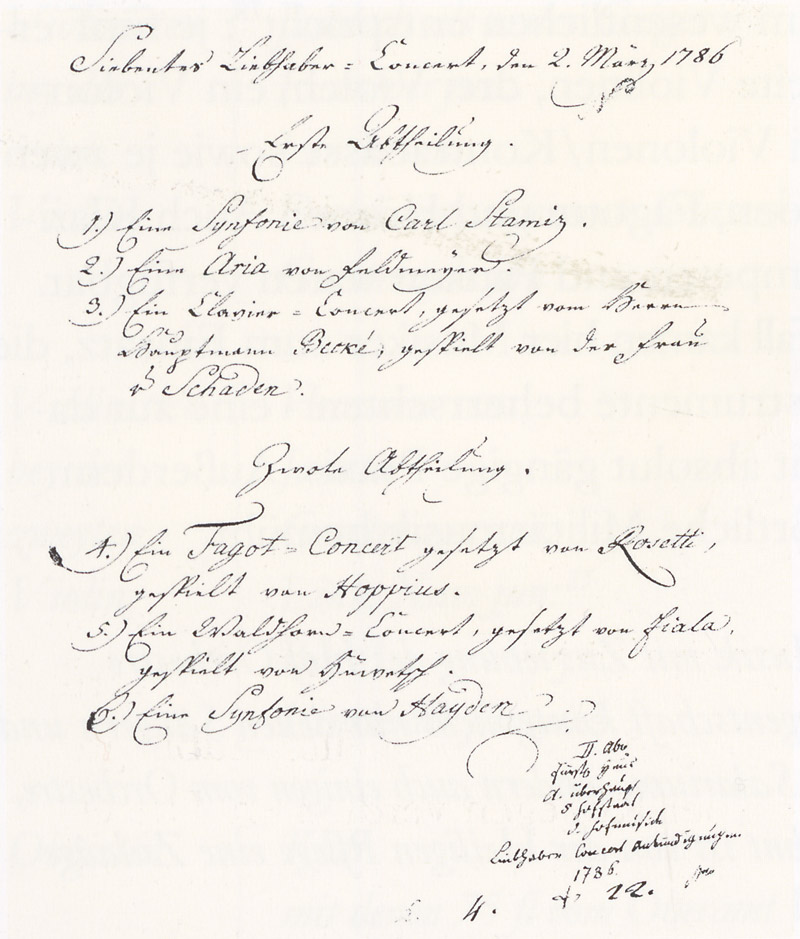 Siebentes Liebhaber=Concert, den 2. März 1786
Erste Abtheilung.
1.) Eine Synfonie von Carl Stamiz.
2.) Eine Aria von Feldmeyer.
3.) Ein Clavier=Concert, gesetzt vom Herrn
Hauptmann Becké, gespielt von der Frau
v Schaden.
Zwote Abtheilung.
4.) Ein Fagot=Concert gesetzt von Rosetti,
gespielt von Hoppius.
5.) Ein Waldhorn=Concert, gesetzt von Fiala,
gespielt von
6.) Eine Synfonie von Hayden
II. Abt
Fürstl. Haus
A. überhaupt
5 Hofstaat
Hofmusick
Liebhaber Concert Ankündigungen.
1786.
22.
4.